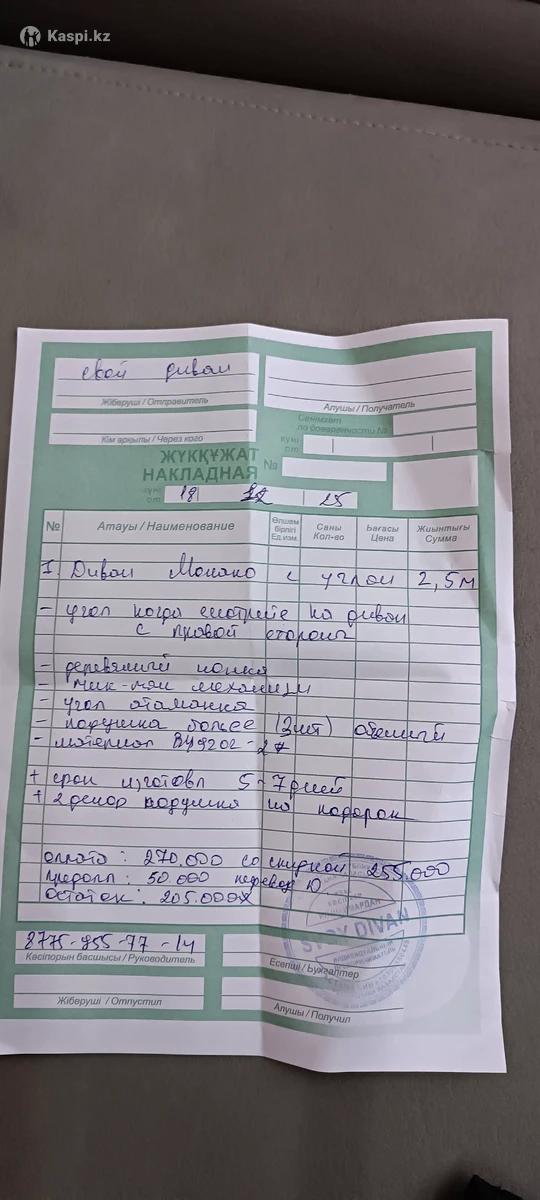 Kaspi.kz
свой диван
Жіберуші / Отправитель
Алушы / Получатель
Кім арқылы / Через кого
Сенімхат
по доверенности №
күні
от
ЖҮКҚҰЖАТ
НАКЛАДНАЯ №
күні
от 18 12 25
№ Атауы / Наименование Өлшем бірлігі Ед.изм. Саны Кол-во Бағасы Цена Жиынтығы Сумма
1. Диван Монако с углом 2,5м
- угол когда смотрите на диван
с правой стороны
- деревянный ножка
- тик-так механизм
- угол атаманка
- подушка более (3шт)
- материал
+ срок изготовл 5-7 дней
+ 2 декор подушка на подарок
оплата : 270.000 со скидкой 255.000
предопл : 50.000 перевод
остаток : 205.000
STOY DIVAN
8775-955-77-14
Кәсіпорын басшысы / Руководитель
Есепші / Бухгалтер
Жіберуші / Отпустил
Алушы / Получил